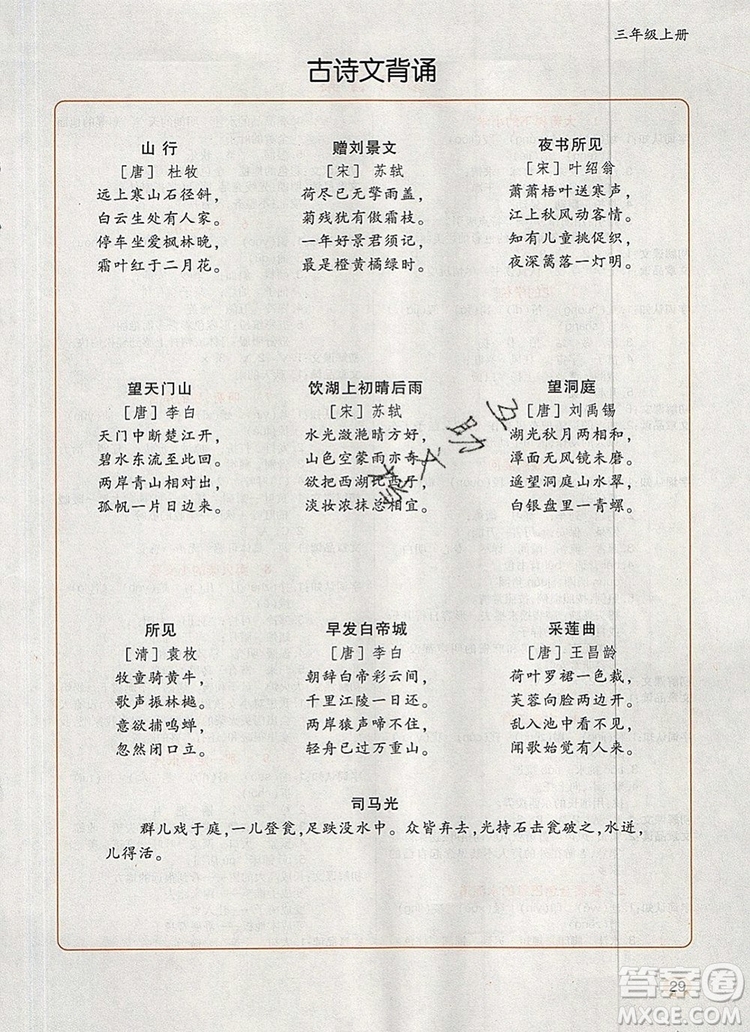 三年级上册
古诗文背诵
山行
[唐] 杜牧
远上寒山石径斜，
白云生处有人家。
停车坐爱枫林晚，
霜叶红于二月花。
赠刘景文
[宋] 苏轼
荷尽已无擎雨盖，
菊残犹有傲霜枝。
一年好景君须记，
最是橙黄橘绿时。
夜书所见
[宋] 叶绍翁
萧萧梧叶送寒声，
江上秋风动客情。
知有儿童挑促织，
夜深篱落一灯明。
望天门山
[唐] 李白
天门中断楚江开，
碧水东流至此回。
两岸青山相对出，
孤帆一片日边来。
饮湖上初晴后雨
[宋] 苏轼
水光潋滟晴方好，
山色空蒙雨亦奇。
欲把西湖比西子，
淡妆浓抹总相宜。
望洞庭
[唐] 刘禹锡
湖光秋月两相和，
潭面无风镜未磨。
遥望洞庭山水翠，
白银盘里一青螺。
所见
[清] 袁枚
牧童骑黄牛，
歌声振林樾。
意欲捕鸣蝉，
忽然闭口立。
早发白帝城
[唐] 李白
朝辞白帝彩云间，
千里江陵一日还。
两岸猿声啼不住，
轻舟已过万重山。
采莲曲
[唐] 王昌龄
荷叶罗裙一色裁，
芙蓉向脸两边开。
乱入池中看不见，
闻歌始觉有人来。
司马光
群儿戏于庭，一儿登瓮，足跌没水中。众皆弃去，光持石击瓮破之，水迸，
儿得活。
互助文
29
答案圈
MXQE.COM